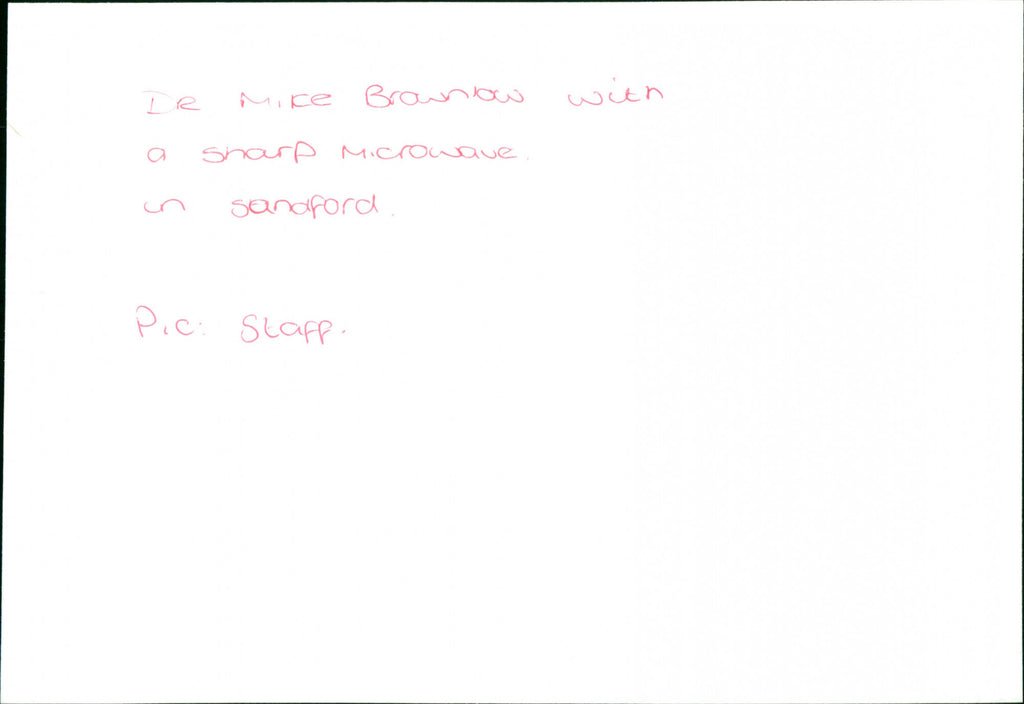 DR Mike Brownlow with
a sharp Microwave.
in sandford.
Pic: Staff.